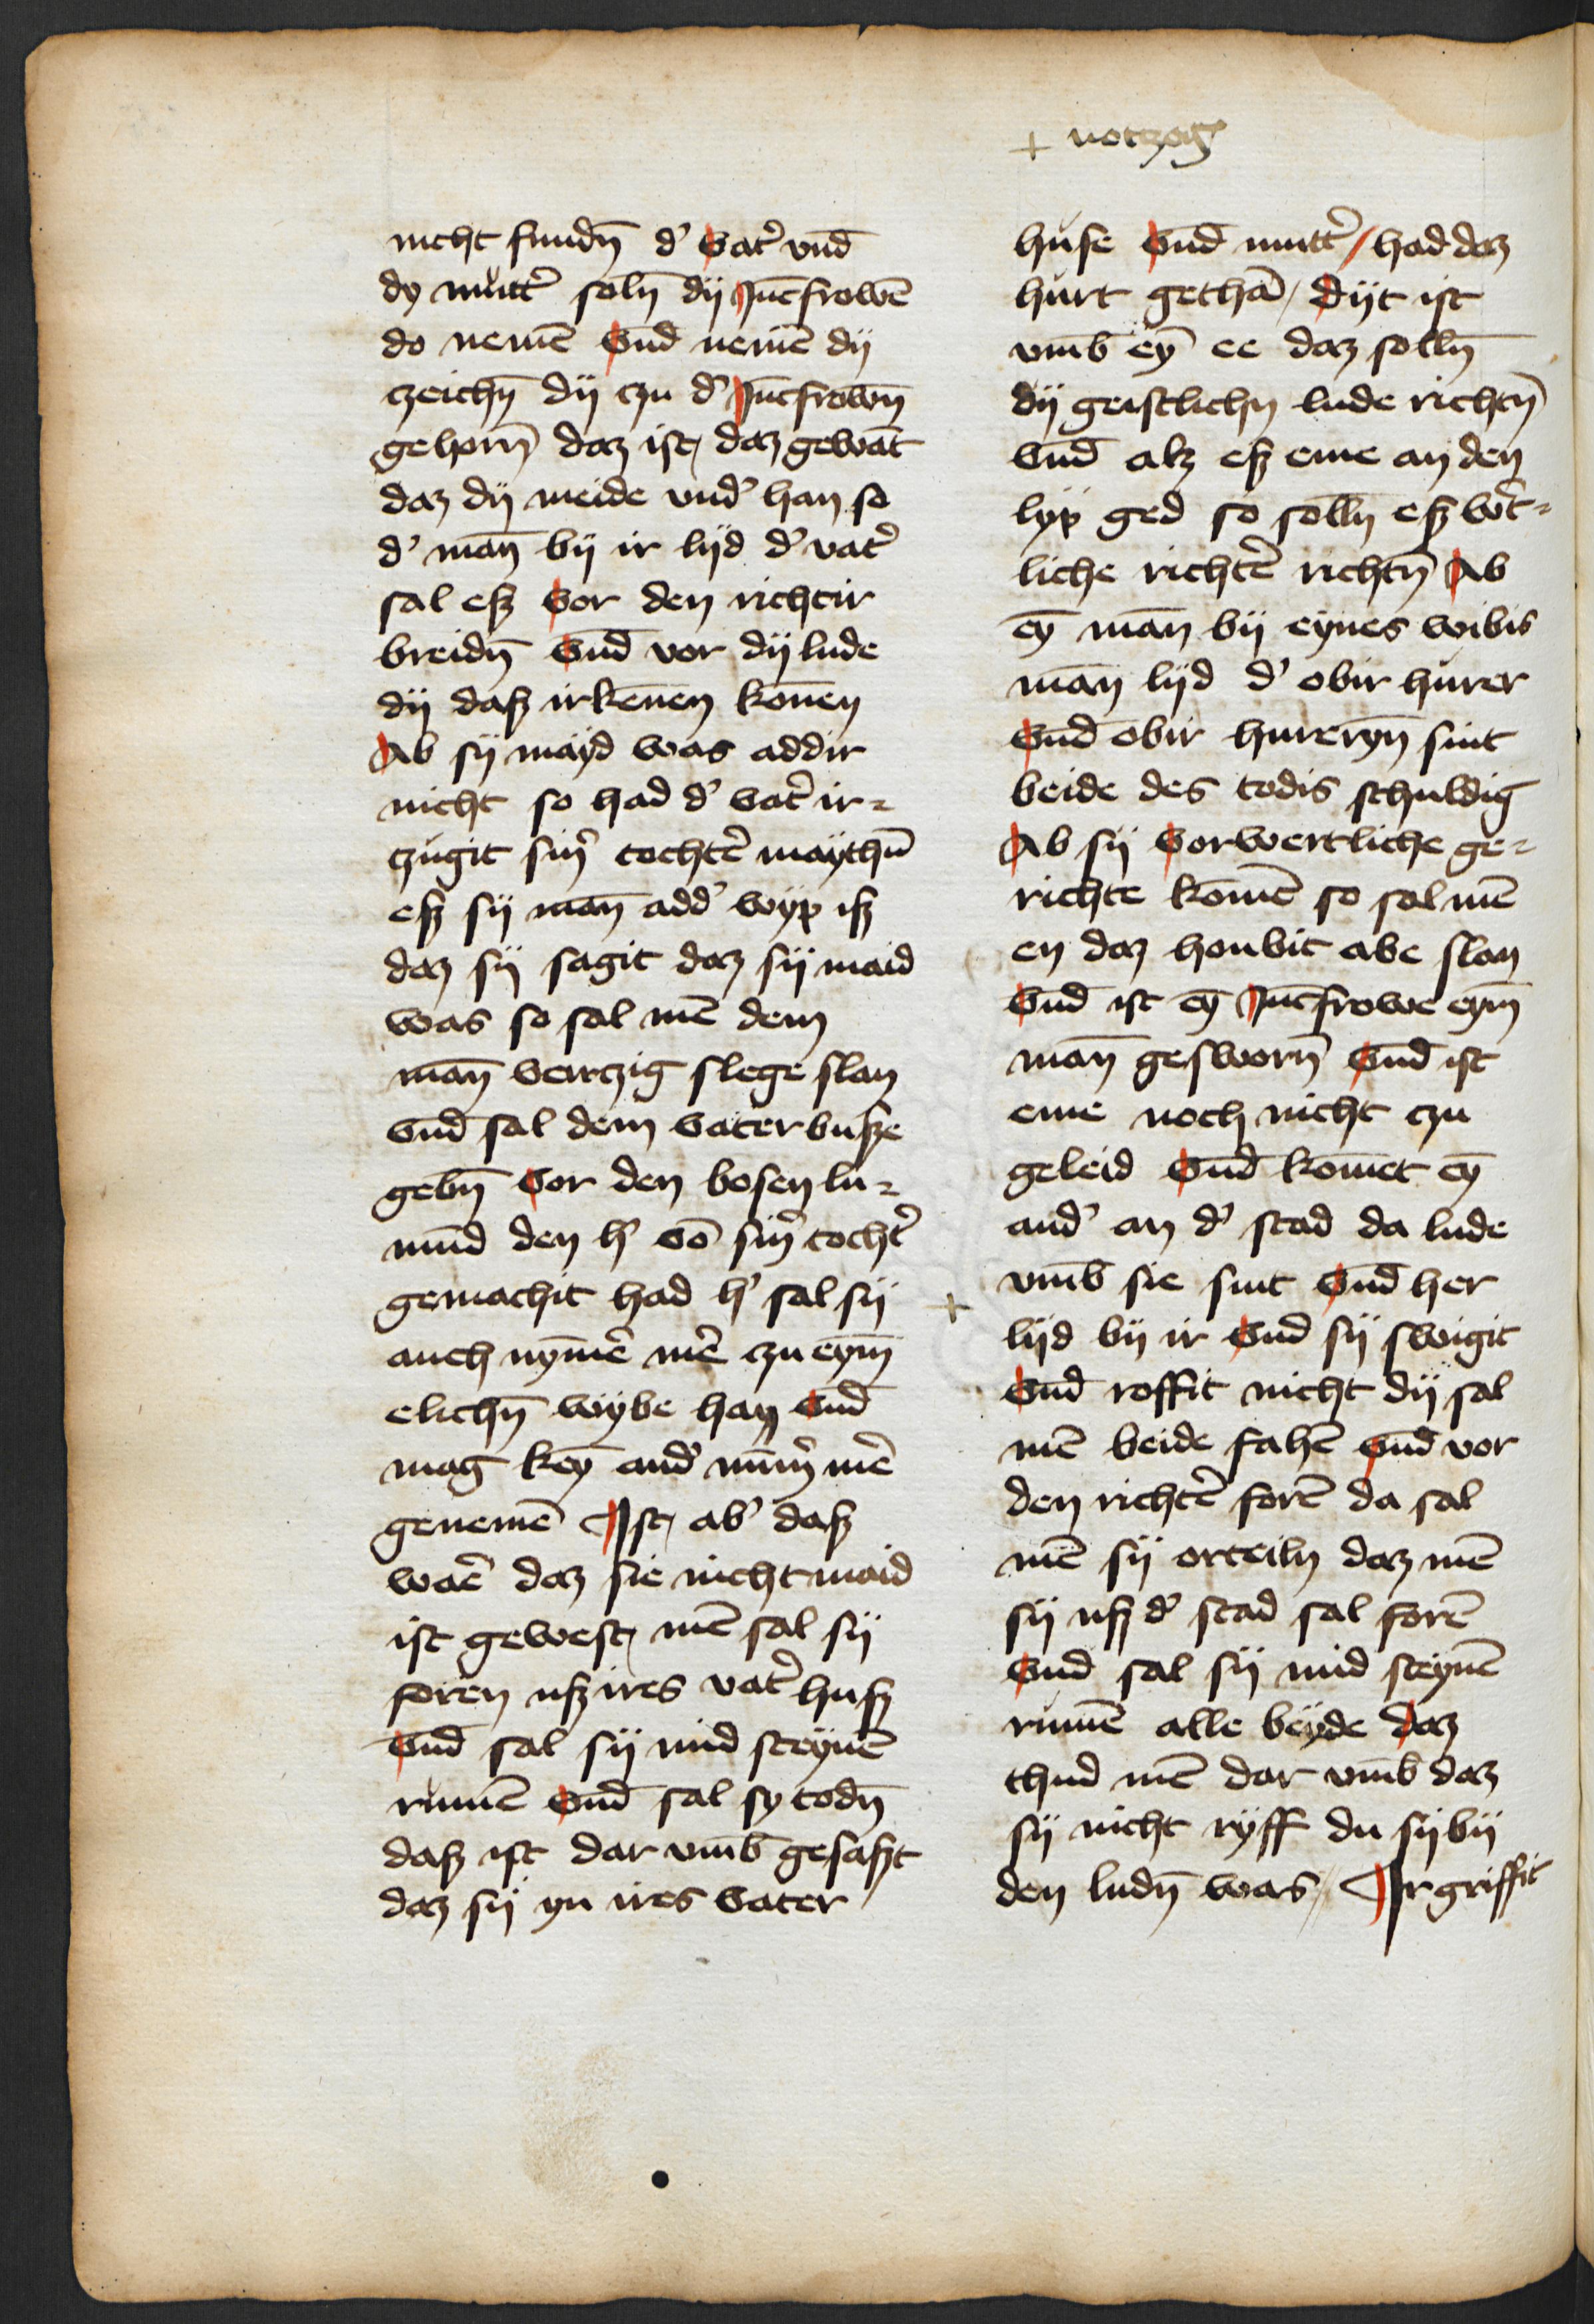 + notzog
nicht fundn̄ d' vat' vnd̄
dy mutt' soln̄ dij Jūcfrowē
do nemē vnd̄ nemē dij
czeichn̄ dij czu d' Jūcfrown̄
gehorn̄ daz ist daz gewāt
daz dij meide vnd' han so
d' man̄ bij ir lijd d' vat'
sal esz vor den richtir
breidn̄ vnd̄ vor dij lude
dij dasz irkēnen kōnen
Ab sij mayd was addir
nicht so had d' vat' ir-
czugit sin' tocht' maythū
esz sij man̄ add' wyp isz
daz sij sagit daz sij maid
was so sal mē dem
man̄ veirczig slege slan
vnd̄ sal dem vater busze
gebn̄ vor den bosen lu-
mūd den h' vō sin' tocht'
gemachit had h' sal sij
auch nȳmē mē czu eym̄
elichn̄ wybe han vnd̄
mag keȳ and' nūm' mē
genemē Ist ab' dasz
waē daz sie nicht maid
ist gewest mē sal sij
foren usz ires vat' husz
vnd̄ sal sij mid steynē
rumē vnd̄ sal sy todn̄
dasz ist dar vmb̄ gesaszt
daz sij yn ires vater
huse vnd̄ mutt' / had daz
hurt gethā / dijt ist
vmb̄ eȳ ee daz solln̄
dij geistlichn lude richtn̄
vnd̄ alz esz eme an den
lyp ged so solln̄ esz w't-
liche richt' richtn̄ Ab
eȳ man̄ bij eynes wibis
man̄ lijd d' obir hurer
vnd̄ obir hureryn̄ sint
beide des todis schuldig
Ab sij vor wertliche ge-
richte komē so sal mē
en daz houbit abe slan
vnd̄ ist eȳ Jūcfrowe eym̄
man̄ gesworn̄ vnd̄ ist
eme noch nicht czu
geleid vnd̄ komet eȳ
and' an d' stad da lude
vmb̄ sie sint vnd̄ her
+ lijd bij ir vnd̄ sij swigit
vnd̄ roffit nicht dij sal
mē beide fahē vnd̄ vor
den richt' forē da sal
mē sij orteiln daz mē
sij usz d' stad sal forē
vnd̄ sal sij mid steynē
rumē alle beyde daz
thud mē dar vmb̄ daz
sij nicht ryff du sij bij
den ludn̄ was / Irgriffit